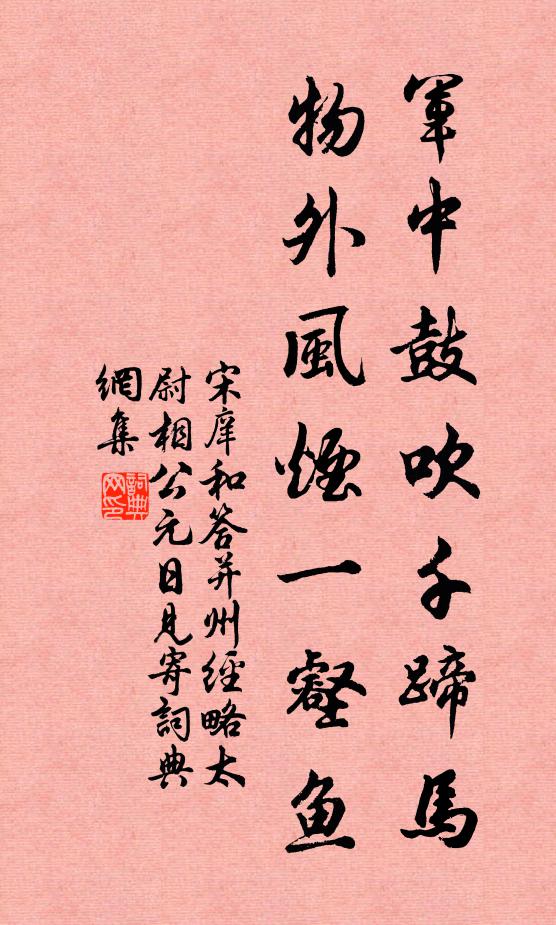 軍中鼓吹千蹄馬
物外風煙一壑鱼
宋庠和答并州經略太
尉相公元日見寄詞典
網集
詞典
网印